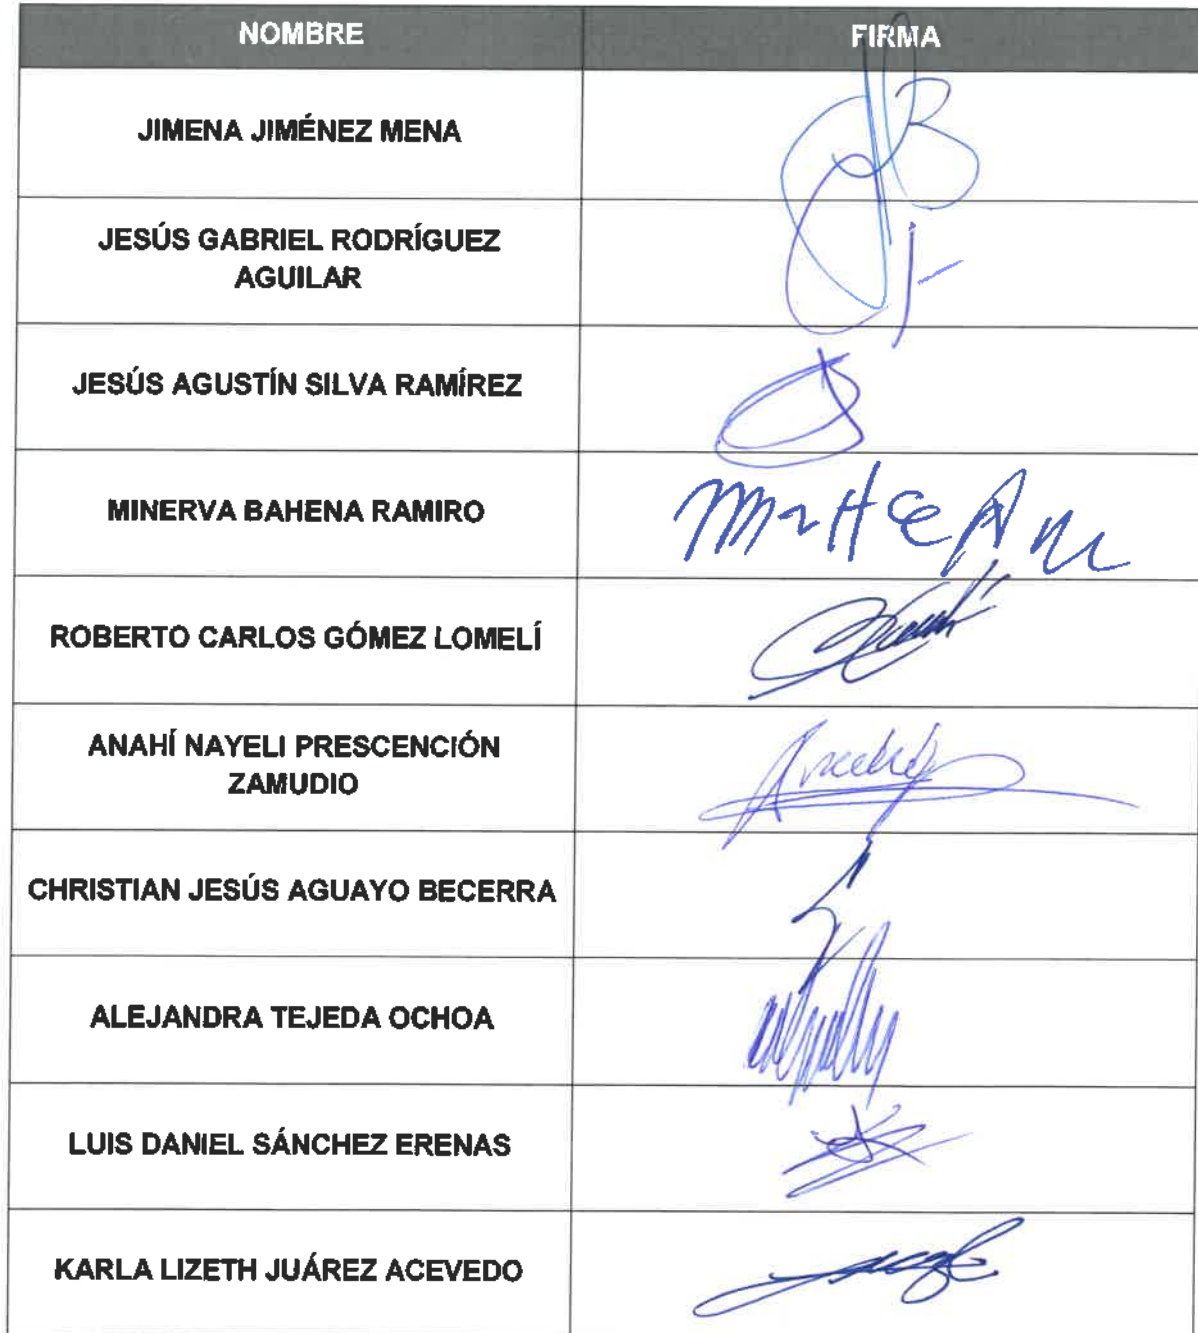 NOMBRE FIRMA
JIMENA JIMÉNEZ MENA
JESÚS GABRIEL RODRÍGUEZ
AGUILAR
JESÚS AGUSTÍN SILVA RAMÍREZ
MINERVA BAHENA RAMIRO
ROBERTO CARLOS GÓMEZ LOMELÍ
ANAHÍ NAYELI PRESCENCIÓN
ZAMUDIO
CHRISTIAN JESÚS AGUAYO BECERRA
ALEJANDRA TEJEDA OCHOA
LUIS DANIEL SÁNCHEZ ERENAS
KARLA LIZETH JUÁREZ ACEVEDO